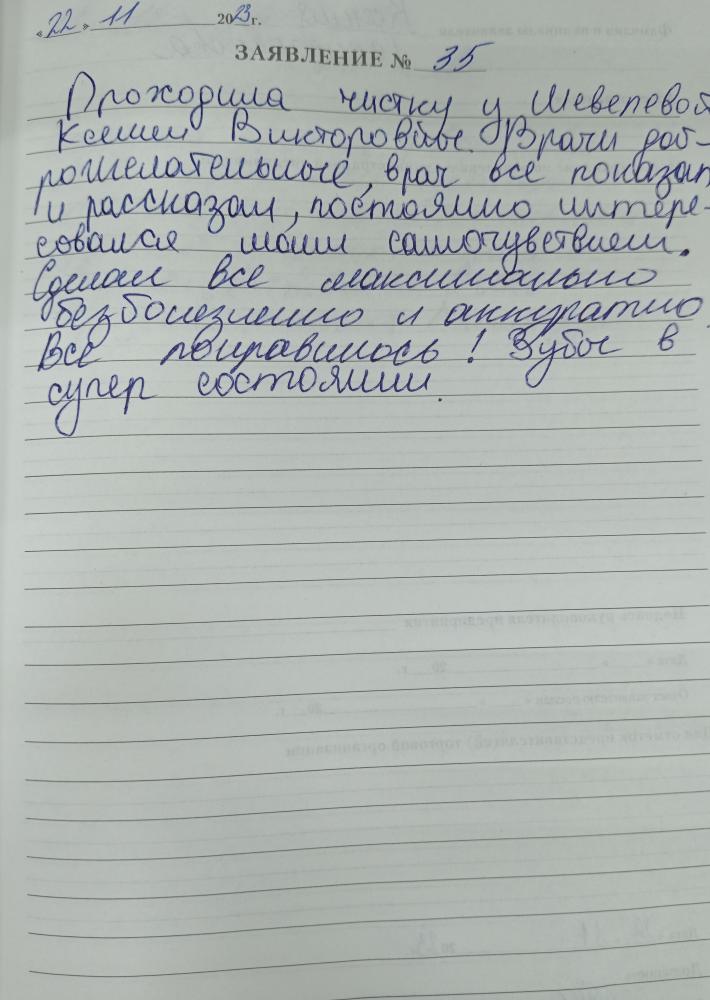 «22» 11 2023г.
ЗАЯВЛЕНИЕ № 35
Проходила чистку у Шевелевой
Ксении Викторовны. Врачи доб-
рожелательные, врач все показал
и рассказал, постоянно интере-
совался моим самочувствием.
Сделал все максимально
безболезненно и аккуратно.
Все понравилось! Зубы в
супер состоянии.